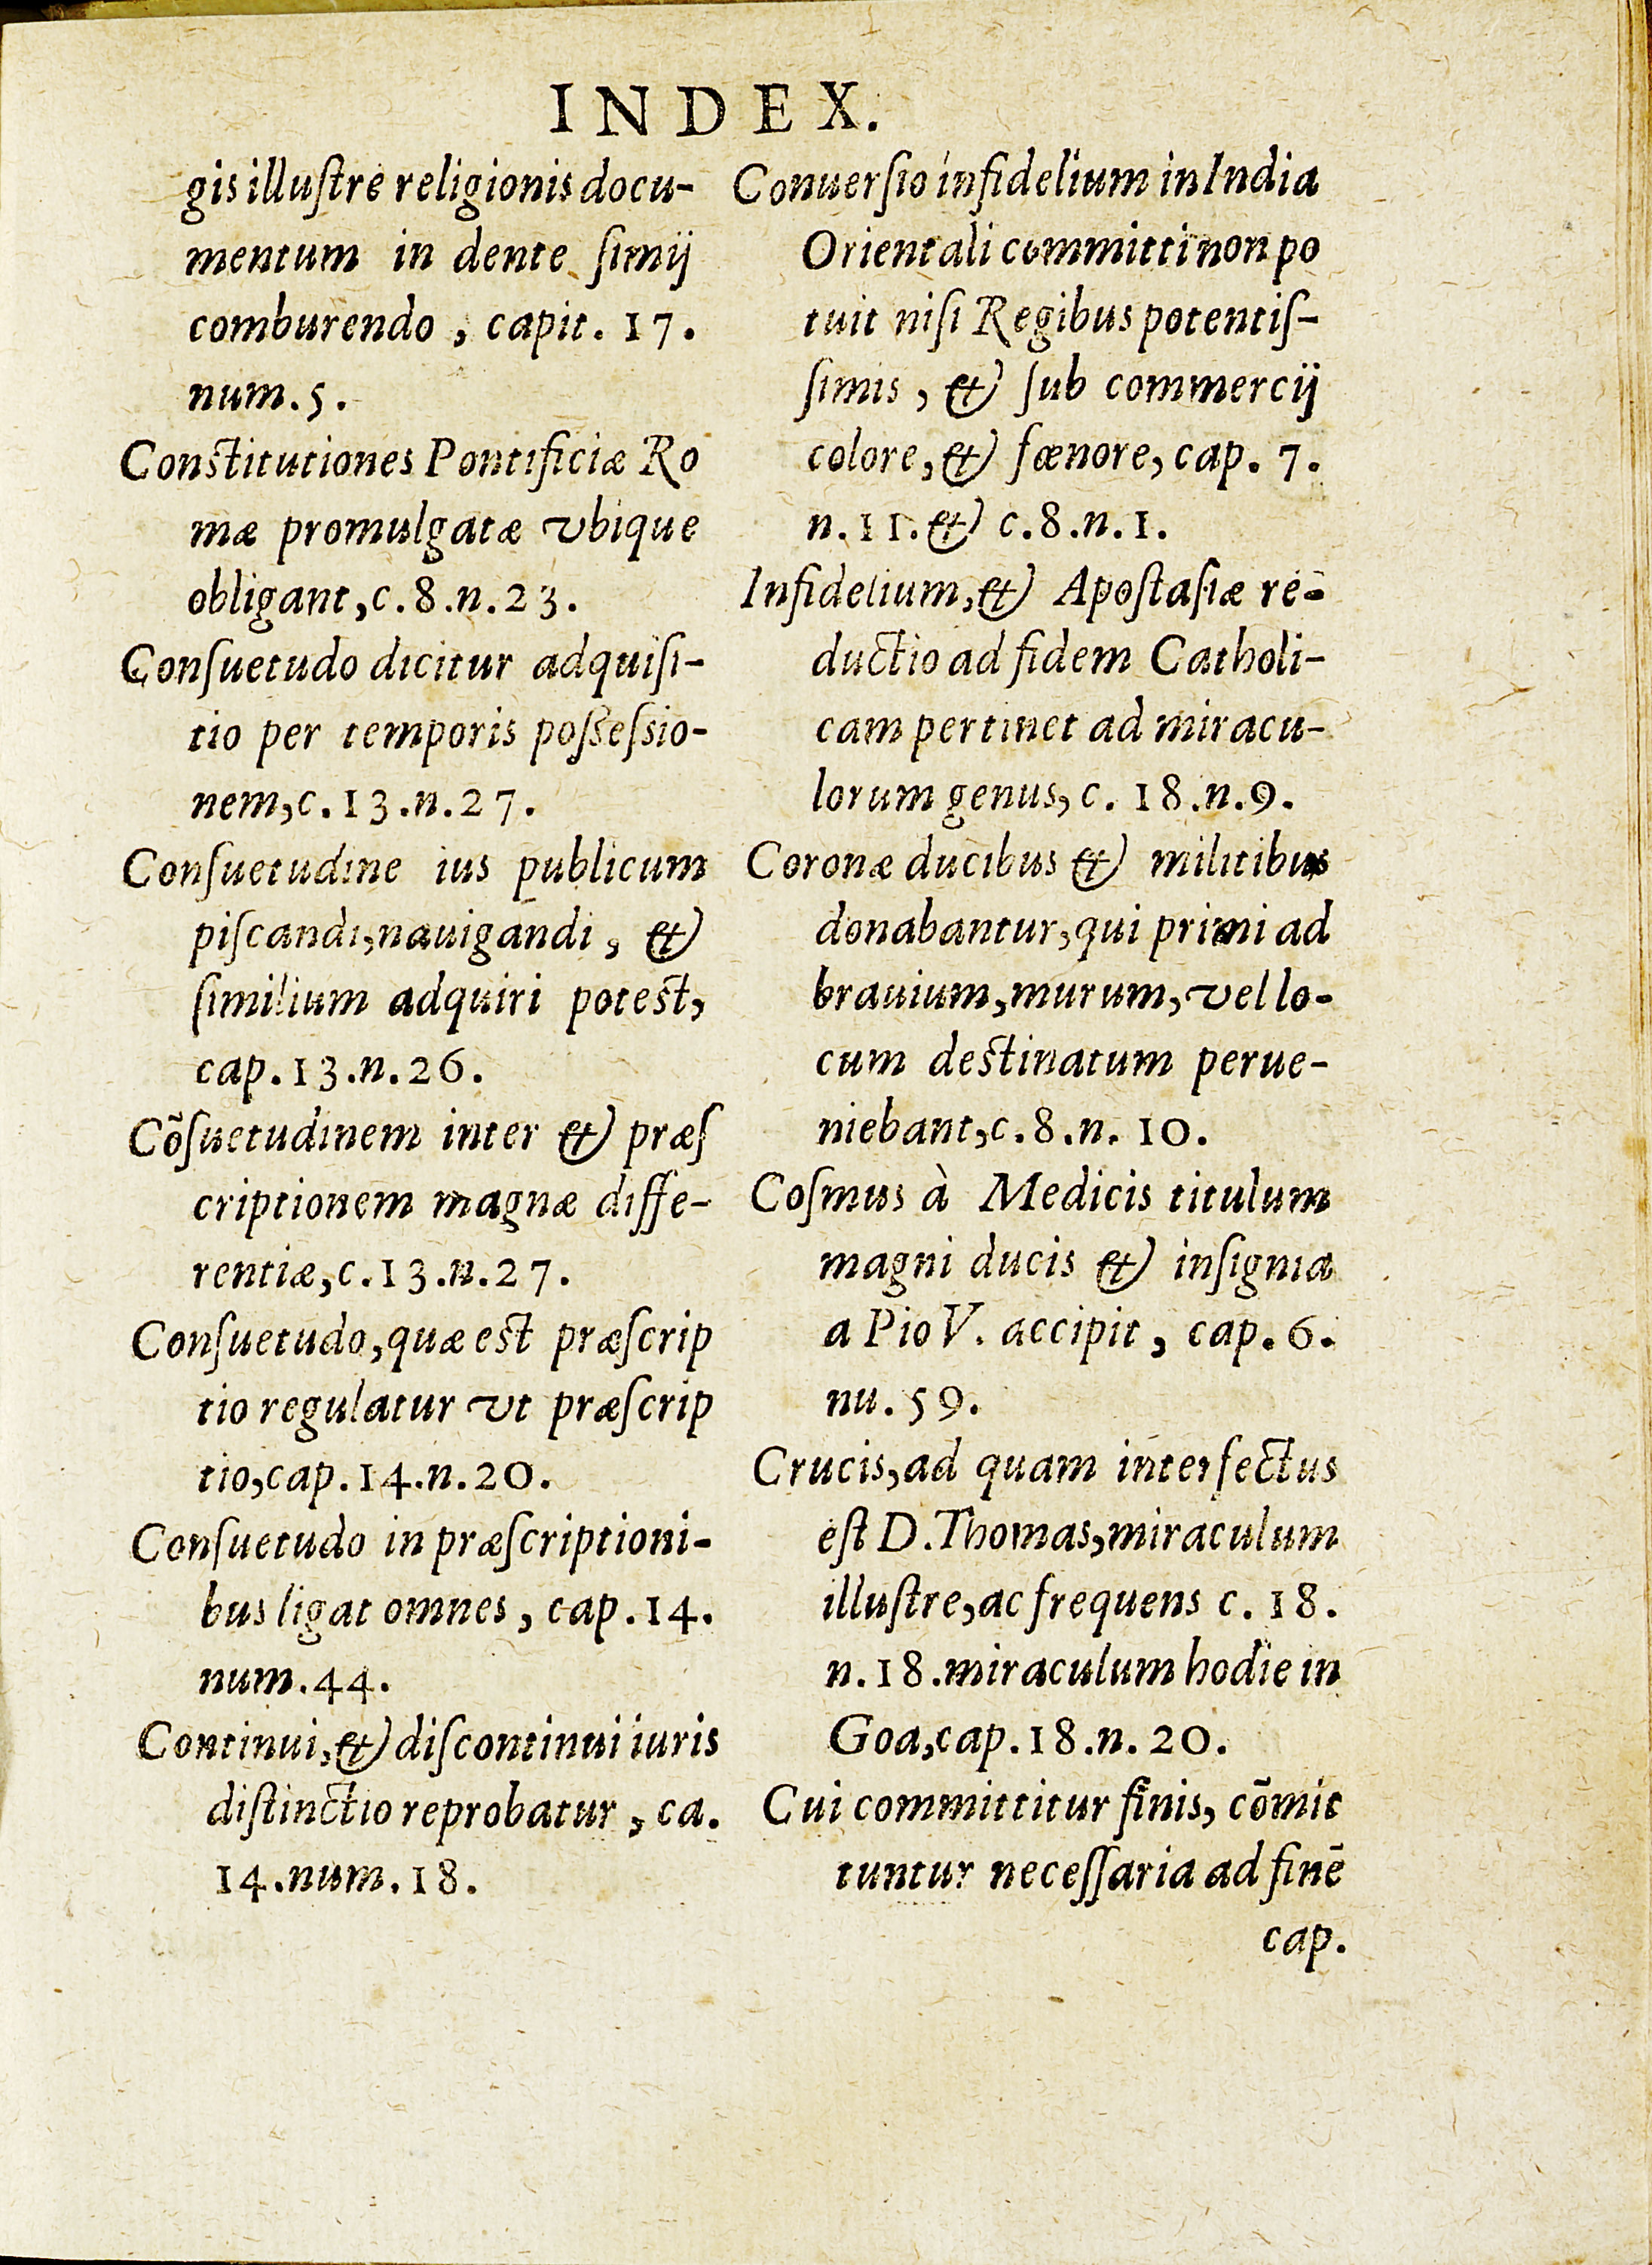 INDEX.
gis illuſtre religionis docu-
mentum in dente ſimij
comburendo, capit. 17.
num. 5.
Conſtitutiones Pontificiæ Ro
mæ promulgatæ vbique
obligant, c. 8. n. 23.
Conſuetudo dicitur adquiſi-
tio per temporis poſſeſsio-
nem, c. 13. n. 27.
Conſuetudine ius publicum
piſcandi, nauigandi, &
ſimilium adquiri poteſt,
cap. 13. n. 26.
Cõſuetudinem inter & præſ
criptionem magnæ diffe-
rentiæ, c. 13. n. 27.
Conſuetudo, quæ eſt præſcrip
tio regulatur vt præſcrip
tio, cap. 14. n. 20.
Conſuetudo in præſcriptioni-
bus ligat omnes, cap. 14.
num. 44.
Continui, & diſcontinui iuris
diſtinctio reprobatur, ca.
14. num. 18.
Conuerſio infidelium in India
Orientali committi non po
tuit niſi Regibus potentiſ-
ſimis, & ſub commercij
colore, & fœnore, cap. 7.
n. 11. & c. 8. n. 1.
Infidelium, & Apoſtaſiæ re-
ductio ad fidem Catholi-
cam pertinet ad miracu-
lorum genus, c. 18. n. 9.
Coronæ ducibus & militibus
donabantur, qui primi ad
brauium, murum, vel lo-
cum deſtinatum perue-
niebant, c. 8. n. 10.
Coſmus à Medicis titulum
magni ducis & inſignia
a Pio V. accipit, cap. 6.
nu. 59.
Crucis, ad quam interfectus
eſt D. Thomas, miraculum
illuſtre, ac frequens c. 18.
n. 18. miraculum hodie in
Goa, cap. 18. n. 20.
Cui committitur finis, cõmit
tuntur neceſſaria ad finẽ
cap.